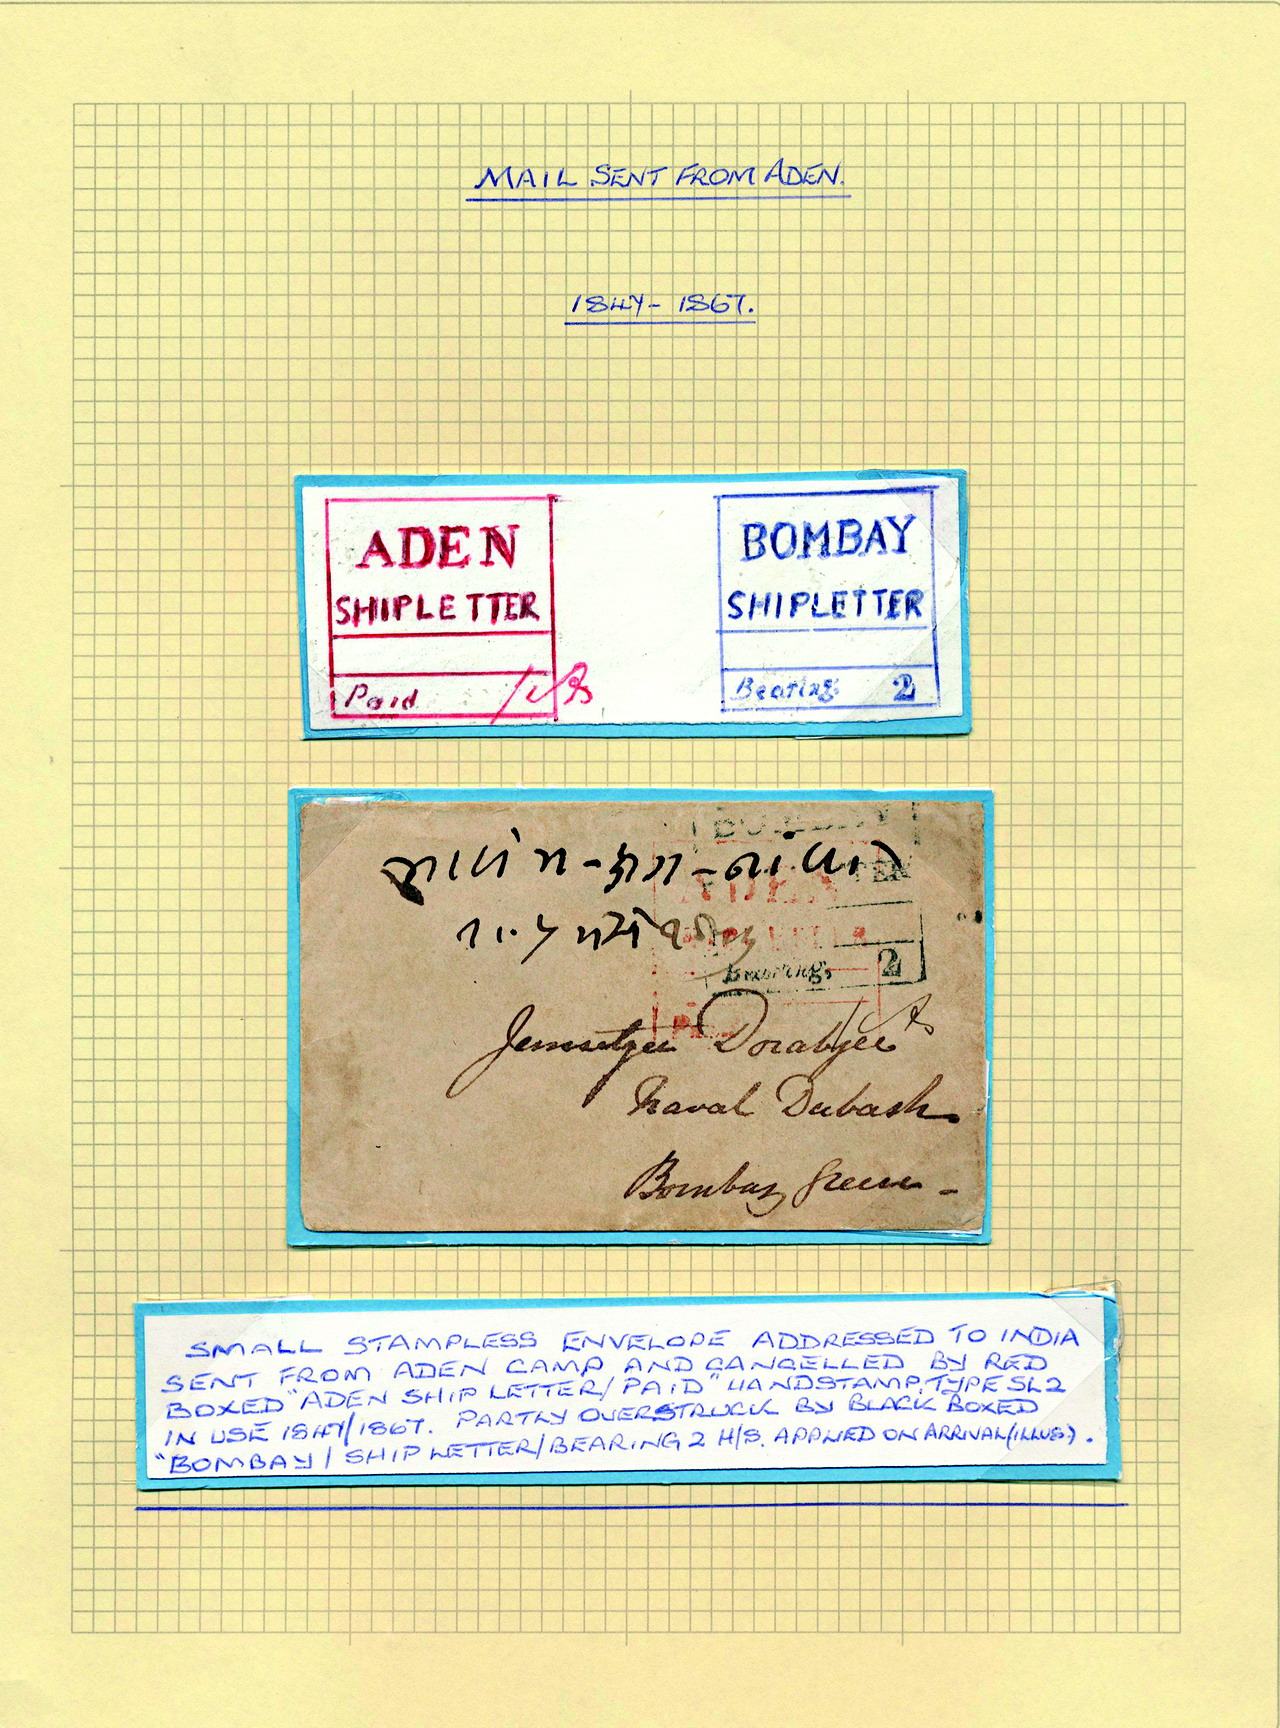 MAIL SENT FROM ADEN.
1847-1867.
ADEN
SHIP LETTER
Paid 1/As
BOMBAY
SHIP LETTER
Bearing 2
BOMBAY
ADEN
Bearing. 2
As
Jemsetjee Dorabjee
Naval Dubash
Bombay Green -
SMALL STAMPLESS ENVELOPE ADDRESSED TO INDIA
SENT FROM ADEN CAMP AND CANCELLED BY RED
BOXED "ADEN SHIP LETTER/PAID" HANDSTAMP. TYPE SL2
IN USE 1847/1867. PARTLY OVERSTRUCK BY BLACK BOXED
"BOMBAY/SHIP LETTER/BEARING 2 H/S. APPLIED ON ARRIVAL (ILLUS).